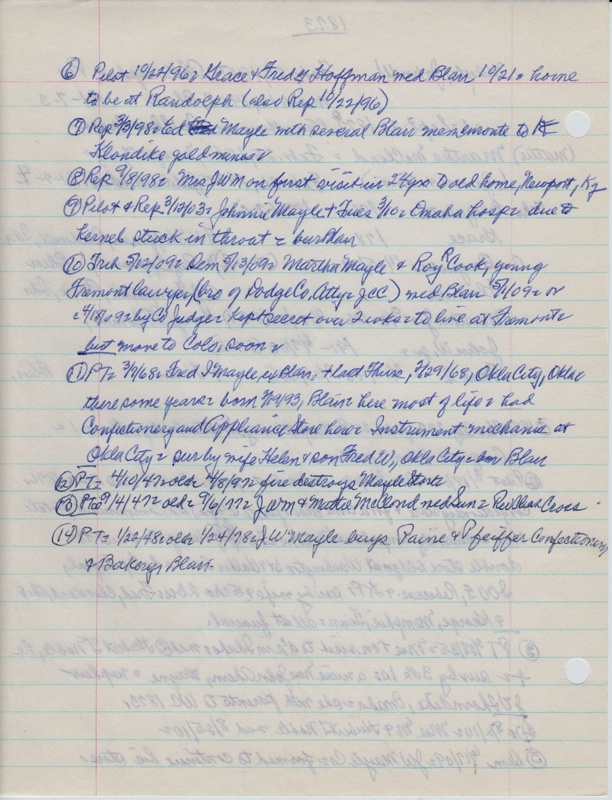 1893
⑥ Pilot 10/22/96 = Grace & Fred G Hoffman med Blair 10/21 = home
to be at Randolph (also Rep 10/22/96)
⑦ Rep 3/3/98 = Ed Mayle with several Blair men en route to
Klondike gold mines =
⑧ Rep 9/8/98 = Mrs JWM on first visit in 24 yrs to old home, Newport, Ky
⑨ Pilot & Rep 3/12/03 = Johnnie Mayle + Tues 3/10 = Omaha hosp = due to
kernel stuck in throat = bur Blair
⑩ Trib 5/12/09 = Dem 5/13/09 = Martha Mayle & Roy Cook, young
Fremont lawyer (bro of Dodge Co. Atty = JCC) med Blair 5/1/09 = or
= 4/18/09 = by Co Judge = kept secret over 2 wks = to live at Fremont =
but move to Colo. soon =
⑪ PT = 3/7/68 = Fred I Mayle, ex Blair, + last Thurs, 2/29/68, Okla City, Okla =
there some years = born 3/29/93, Blair = here most of life = had
Confectionery and Appliance Store here = Instrument mechanic at
Okla City = sur by wife Helen & son Fred W, Okla City = bur Blair
⑫ PT = 4/10/47 = older 4/8/97 = fire destroys Mayle Store
⑬ PT = 9/4/47 = older 9/6/77 = JWM & Mattie McClond med Sun =
⑭ PT = 1/22/48 = older 1/24/78 = J W Mayle buys Paine & Pfeiffer Confectionery
& Bakery, Blair =